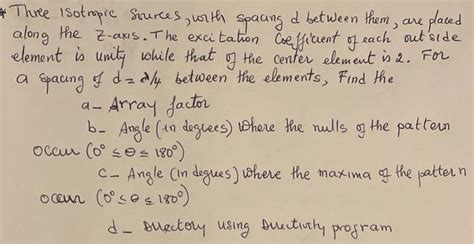 * Three Isotropic Sources, with spacing d between them, are placed
along the Z-axis. The excitation Coefficient of each out side
element is unity while that of the center element is 2. For
a spacing of d = λ/4 between the elements, Find the
a- Array factor
b- Angle (in degrees) Where the nulls of the pattern
occur (0° ≤ θ ≤ 180°)
C- Angle (in degrees) Where the maxima of the pattern
occur (0° ≤ θ ≤ 180°)
d- Directory using Directivity program